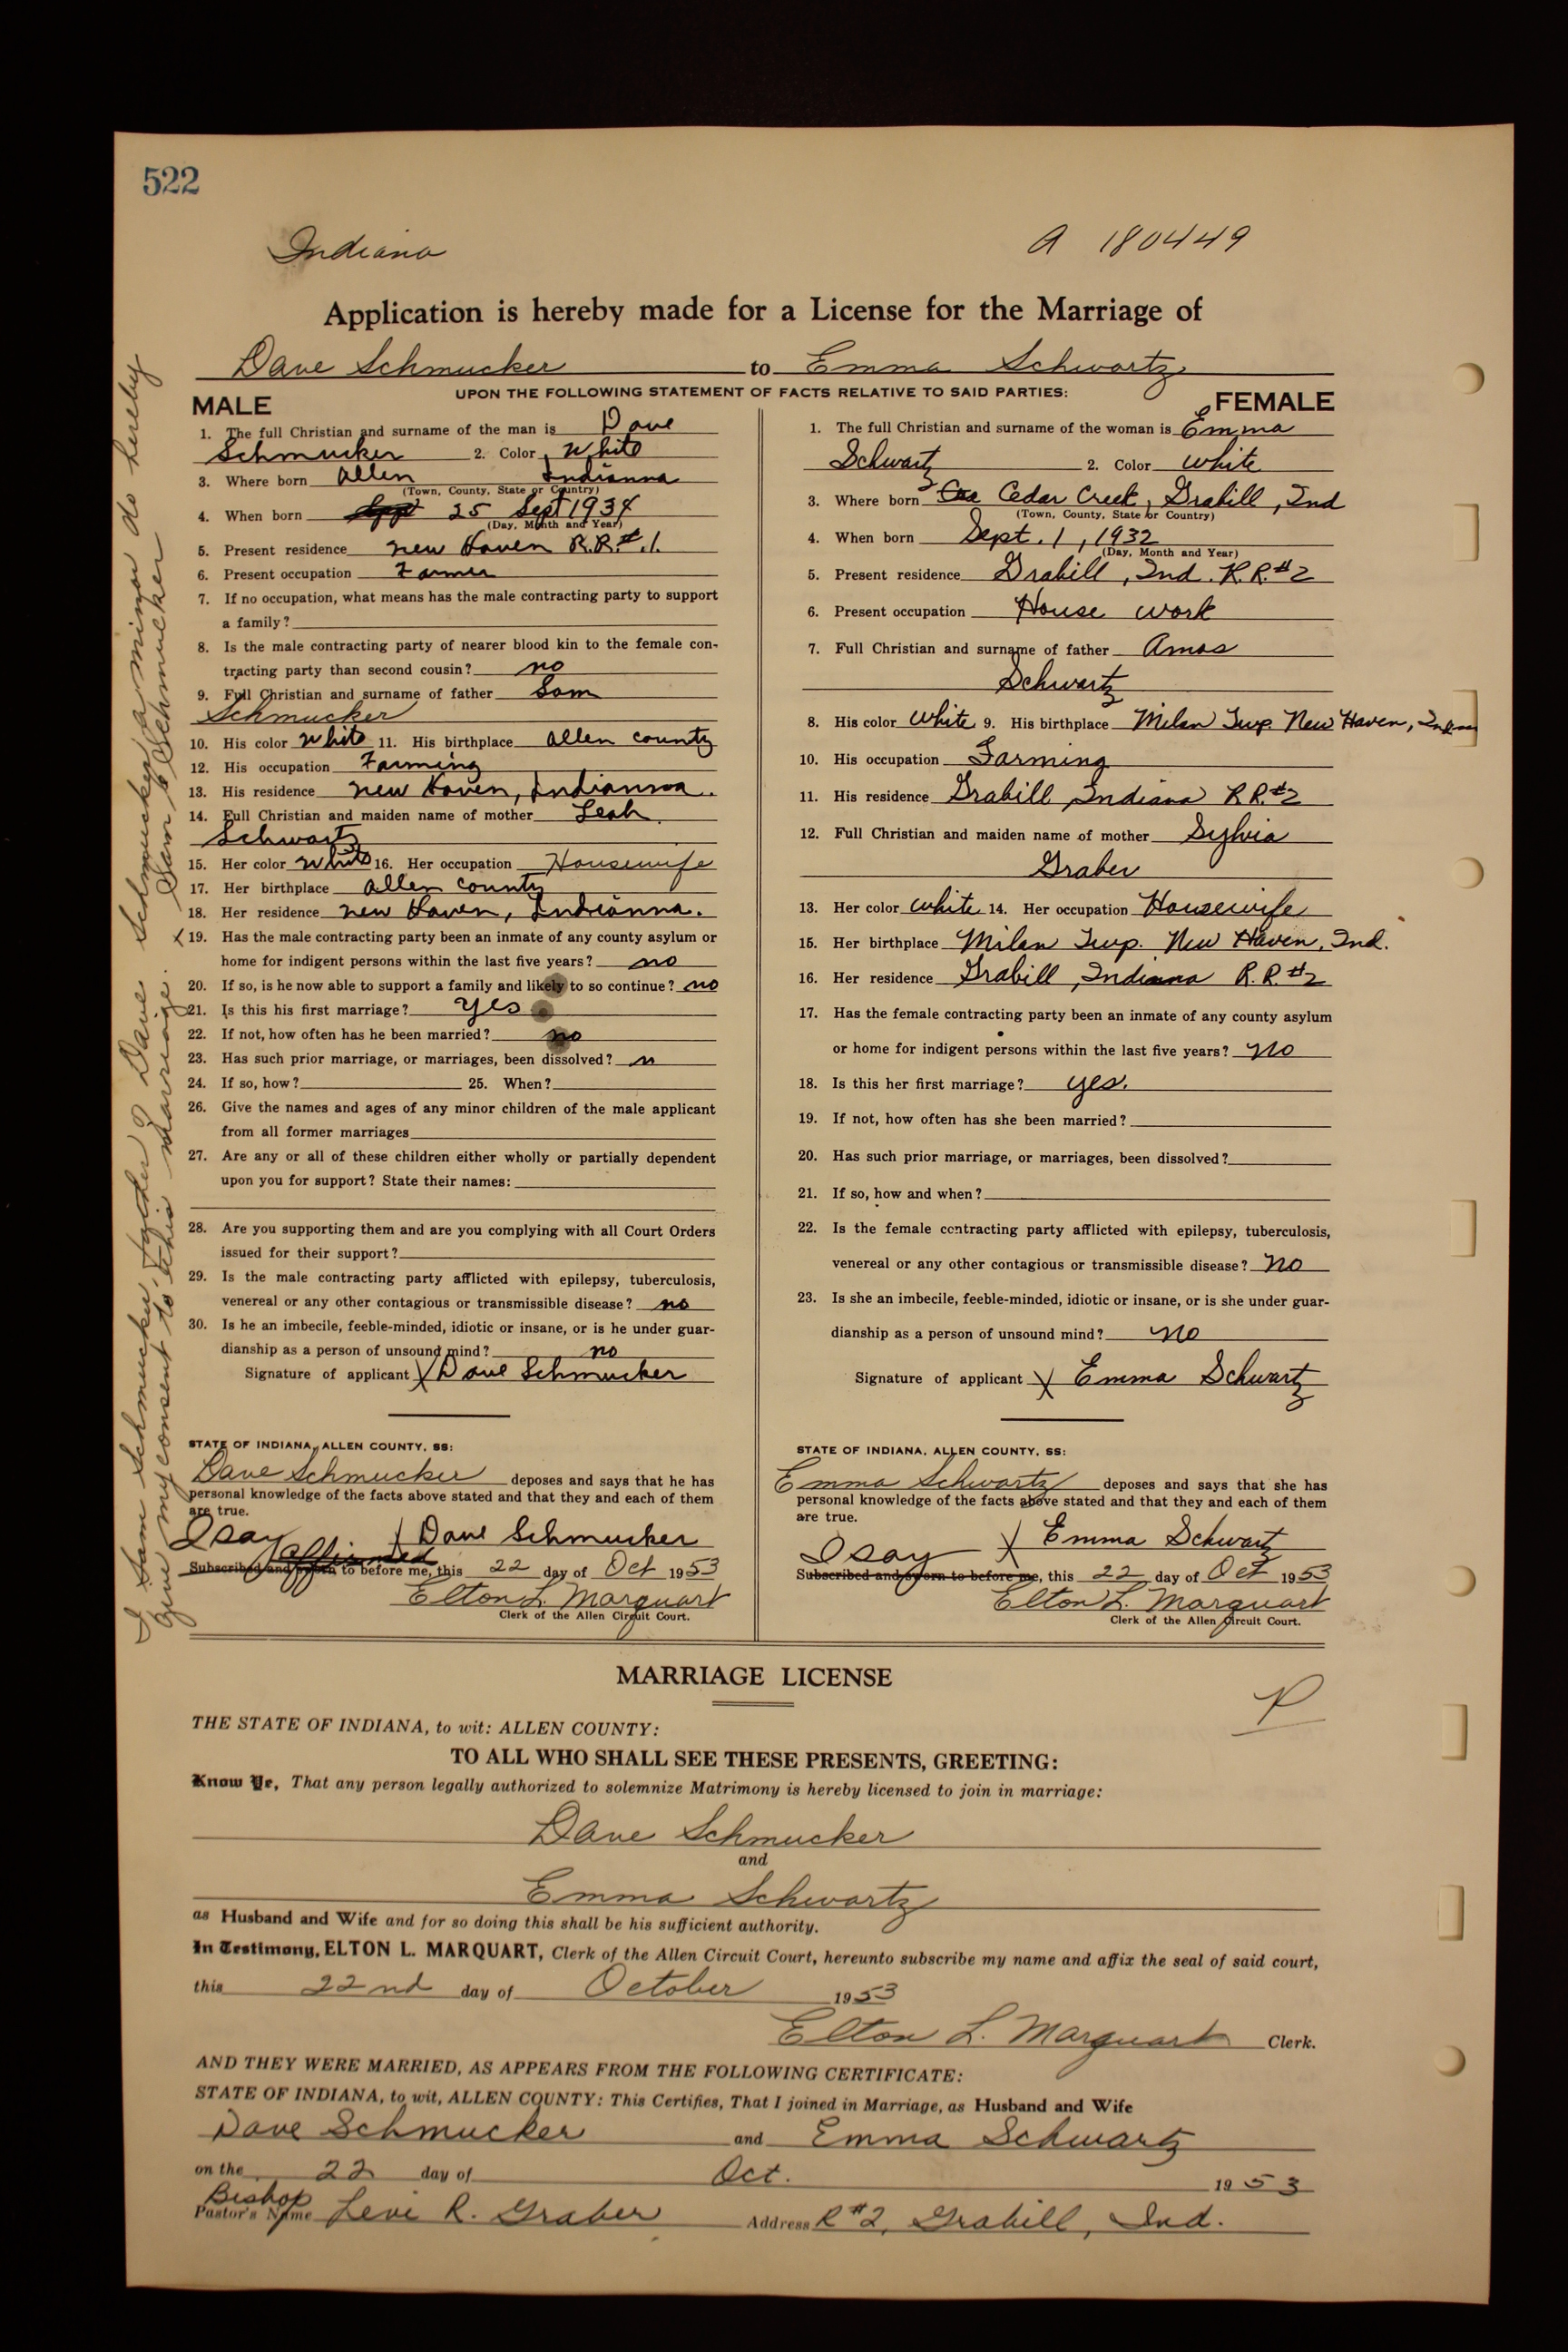 522
Indiana
A 180449
Application is hereby made for a License for the Marriage of
Dave Schmucker to Emma Schwartz
UPON THE FOLLOWING STATEMENT OF FACTS RELATIVE TO SAID PARTIES:
MALE
1. The full Christian and surname of the man is Dave
Schmucker 2. Color White
3. Where born Allen Indianna
(Town, County, State or Country)
4. When born 25 Sept 1934
(Day, Month and Year)
5. Present residence new Haven R.R.#.1.
6. Present occupation Farmer
7. If no occupation, what means has the male contracting party to support
a family?
8. Is the male contracting party of nearer blood kin to the female con-
tracting party than second cousin? no
9. Full Christian and surname of father Sam
Schmucker
10. His color White 11. His birthplace allen county
12. His occupation Farming
13. His residence new Haven, Indianna.
14. Full Christian and maiden name of mother Leah
Schwartz
15. Her color White 16. Her occupation Housewife
17. Her birthplace allen county
18. Her residence new Haven, Indianna.
X 19. Has the male contracting party been an inmate of any county asylum or
home for indigent persons within the last five years? no
20. If so, is he now able to support a family and likely to so continue? no
21. Is this his first marriage? yes
22. If not, how often has he been married? no
23. Has such prior marriage, or marriages, been dissolved? n
24. If so, how? 25. When?
26. Give the names and ages of any minor children of the male applicant
from all former marriages
27. Are any or all of these children either wholly or partially dependent
upon you for support? State their names:
28. Are you supporting them and are you complying with all Court Orders
issued for their support?
29. Is the male contracting party afflicted with epilepsy, tuberculosis,
venereal or any other contagious or transmissible disease? no
30. Is he an imbecile, feeble-minded, idiotic or insane, or is he under guar-
dianship as a person of unsound mind? no
Signature of applicant X Dave Schmucker
STATE OF INDIANA, ALLEN COUNTY, SS:
Dave Schmucker deposes and says that he has
personal knowledge of the facts above stated and that they and each of them
are true.
I say X Dave Schmucker
affirmed
Subscribed and sworn to before me, this 22 day of Oct 1953
Elton L. Marquart
Clerk of the Allen Circuit Court.
FEMALE
1. The full Christian and surname of the woman is Emma
Schwartz 2. Color White
3. Where born Cedar Creek, Grabill, Ind
(Town, County, State or Country)
4. When born Sept. 1, 1932
(Day, Month and Year)
5. Present residence Grabill, Ind. R.R.#2
6. Present occupation House work
7. Full Christian and surname of father Amos
Schwartz
8. His color White 9. His birthplace Milan Twp. New Haven,
10. His occupation Farming
11. His residence Grabill, Indiana R.R.#2
12. Full Christian and maiden name of mother Sylvia
Graber
13. Her color White 14. Her occupation Housewife
15. Her birthplace Milan Twp. New Haven, Ind.
16. Her residence Grabill, Indiana R.R.#2
17. Has the female contracting party been an inmate of any county asylum
or home for indigent persons within the last five years? no
18. Is this her first marriage? yes.
19. If not, how often has she been married?
20. Has such prior marriage, or marriages, been dissolved?
21. If so, how and when?
22. Is the female contracting party afflicted with epilepsy, tuberculosis,
venereal or any other contagious or transmissible disease? no
23. Is she an imbecile, feeble-minded, idiotic or insane, or is she under guar-
dianship as a person of unsound mind? no
Signature of applicant X Emma Schwartz
STATE OF INDIANA, ALLEN COUNTY, SS:
Emma Schwartz deposes and says that she has
personal knowledge of the facts above stated and that they and each of them
are true.
I say X Emma Schwartz
Subscribed and sworn to before me, this 22 day of Oct 1953
Elton L. Marquart
Clerk of the Allen Circuit Court.
I Sam Schmucker, father of Dave Schmucker, a minor do hereby
give my consent to this marriage. Sam Schmucker
MARRIAGE LICENSE
P
THE STATE OF INDIANA, to wit: ALLEN COUNTY:
TO ALL WHO SHALL SEE THESE PRESENTS, GREETING:
Know Ye, That any person legally authorized to solemnize Matrimony is hereby licensed to join in marriage:
Dave Schmucker
and
Emma Schwartz
as Husband and Wife and for so doing this shall be his sufficient authority.
In Testimony, ELTON L. MARQUART, Clerk of the Allen Circuit Court, hereunto subscribe my name and affix the seal of said court,
this 22nd day of October 1953
Elton L. Marquart Clerk.
AND THEY WERE MARRIED, AS APPEARS FROM THE FOLLOWING CERTIFICATE:
STATE OF INDIANA, to wit, ALLEN COUNTY: This Certifies, That I joined in Marriage, as Husband and Wife
Dave Schmucker and Emma Schwartz
on the 22 day of Oct. 1953
Bishop
Pastor's Name Levi R. Graber Address R#2, Grabill, Ind.